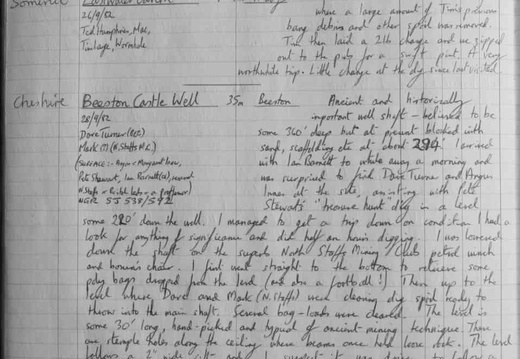 Somerset Eastwater Cavern
where a large amount of Tim's previous
26/9/82 bang debris and other spoil was removed.
Ted Humphreys, Mac, Tim then laid a 2lb charge and we zipped
Tim Large, Wormhole out to the pub for a swift pint. A very
worthwhile trip. Little change at the dig since last visited
Cheshire Beeston Castle Well 35m Beeston Ancient and historically
28/9/82 important well shaft - believed to be
Dave Turner some 360' deep but at present blocked with
Mark (?) (N. Staffs M.C.) sand, scaffolding etc at about 294'. I arrived
(Surface :- Angus + Margaret Innes, with Ian Barnett to while away a morning and
Pete Stewart, Ian Barnett(?), several was surprised to find Dave Turner and Angus
N. Staffs + Bristol lads + a professor) Innes at the site, assisting with Pete
NGR SJ 538/592 Stewart's "treasure hunt" dig in a level
some 220' down the well. I managed to get a trip down on condition I had a
look for anything of significance and did half an hours digging. I was lowered
down the shaft on the superb North Staffs Mining Club's petrol winch
and bosun's chair. I first went straight to the bottom to retrieve some
poly bags dropped from the level (and also a football!). Then up to the
level where Dave and Mark (N. Staffs) were clearing dig spoil ready to
throw into the main shaft. Several bag-loads were cleared. The level is
some 30' long, hand-picked and typical of ancient mining technique. There
are stemple holes along the ceiling where beams once held loose rock. The level
follows a 2" wide